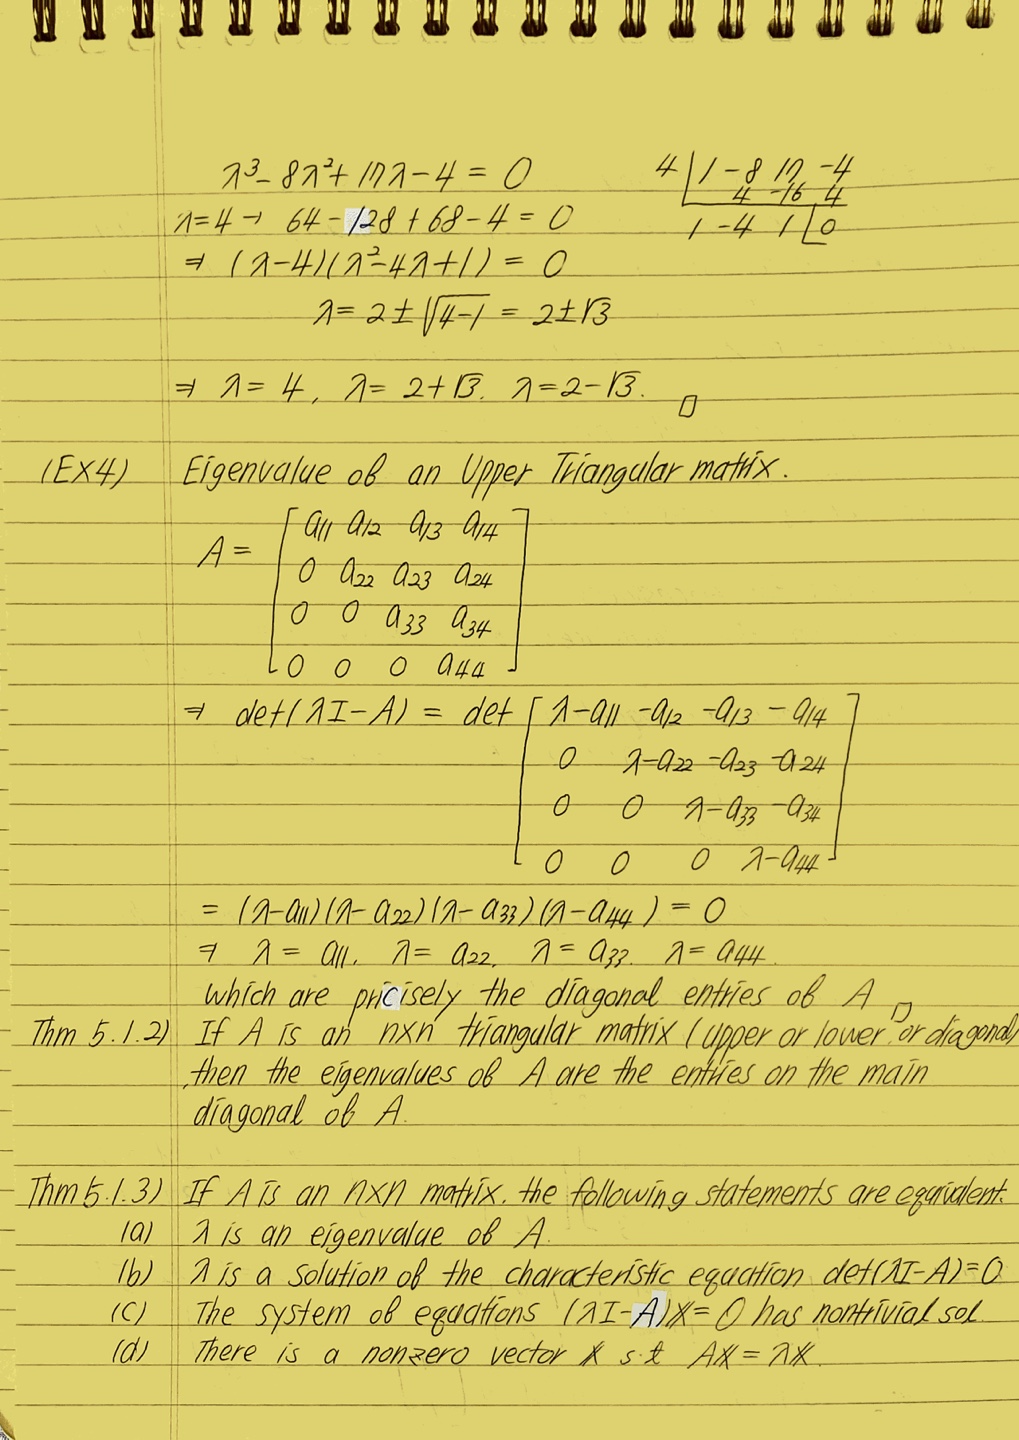 λ³ - 8λ² + 17λ - 4 = 0
4 | 1 -8 17 -4
4 -16 4
1 -4 1 | 0
λ=4 → 64 - 128 + 68 - 4 = 0
⇒ (λ-4)(λ²-4λ+1) = 0
λ = 2 ± √(4-1) = 2±√3
⇒ λ = 4, λ = 2+√3. λ = 2-√3. □
(EX4) Eigenvalue of an Upper Triangular matrix.
A = [ a11 a12 a13 a14
0 a22 a23 a24
0 0 a33 a34
0 0 0 a44 ]
⇒ det(λI-A) = det [ λ-a11 -a12 -a13 -a14
0 λ-a22 -a23 -a24
0 0 λ-a33 -a34
0 0 0 λ-a44 ]
= (λ-a11)(λ-a22)(λ-a33)(λ-a44) = 0
⇒ λ = a11, λ = a22, λ = a33. λ = a44.
which are pricisely the diagonal entries of A □
Thm 5.1.2) If A is an n×n triangular matrix (upper or lower or diagonal)
,then the eigenvalues of A are the entries on the main
diagonal of A.
Thm 5.1.3) If A is an n×n matrix. the following statements are equivalent.
(a) λ is an eigenvalue of A.
(b) λ is a solution of the characteristic equation det(λI-A)=0
(c) The system of equations (λI-A)𝕏 = 0 has nontrivial sol.
(d) There is a nonzero vector 𝕏 s.t A𝕏 = λ𝕏.